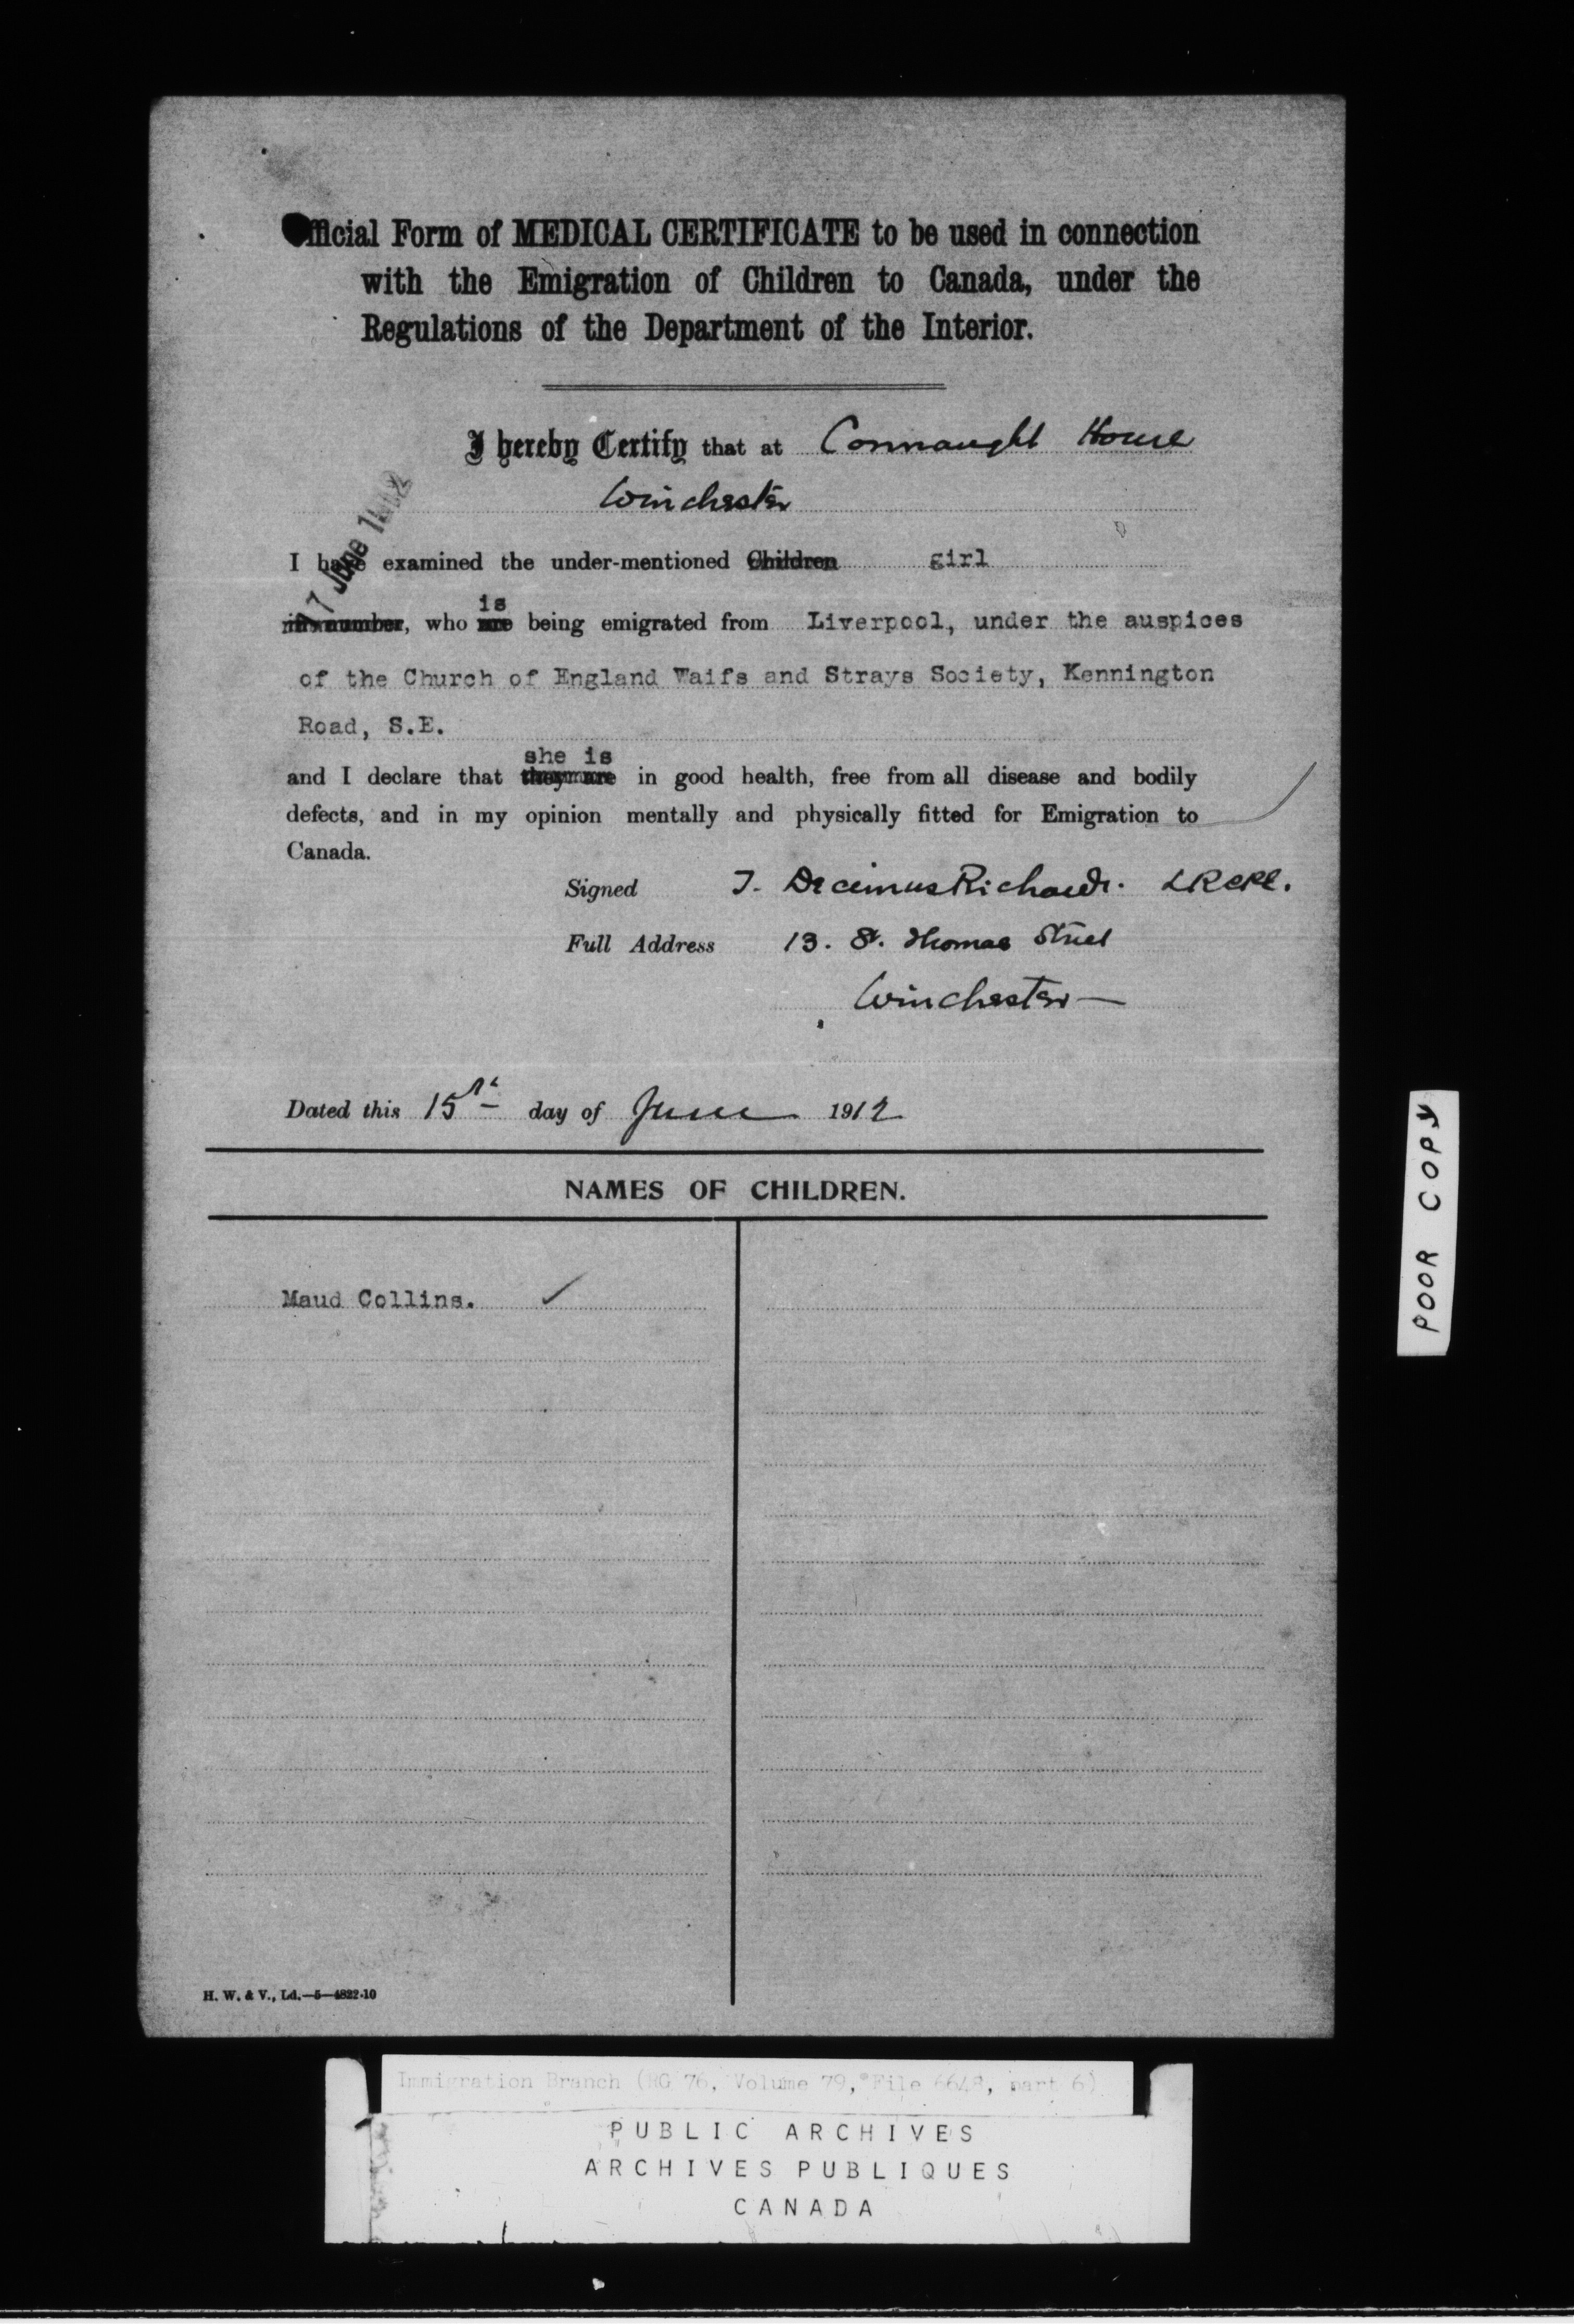 Official Form of MEDICAL CERTIFICATE to be used in connection
with the Emigration of Children to Canada, under the
Regulations of the Department of the Interior.
I hereby Certify that at Connaught House
Winchester
17 June 1912
I have examined the under-mentioned Children girl
in number, who are is being emigrated from Liverpool, under the auspices
of the Church of England Waifs and Strays Society, Kennington
Road, S.E.
she is
and I declare that they are in good health, free from all disease and bodily
defects, and in my opinion mentally and physically fitted for Emigration to
Canada.
Signed T. Decimus Richards. LRCPE.
Full Address 13. St. Thomas Street
Winchester
Dated this 15th day of June 1912
NAMES OF CHILDREN.
Maud Collins. ✓
H. W. & V., Ld.—5—4822-10
POOR COPY
Immigration Branch (RG 76, Volume 79, File 6648, part 6)
PUBLIC ARCHIVES
ARCHIVES PUBLIQUES
CANADA